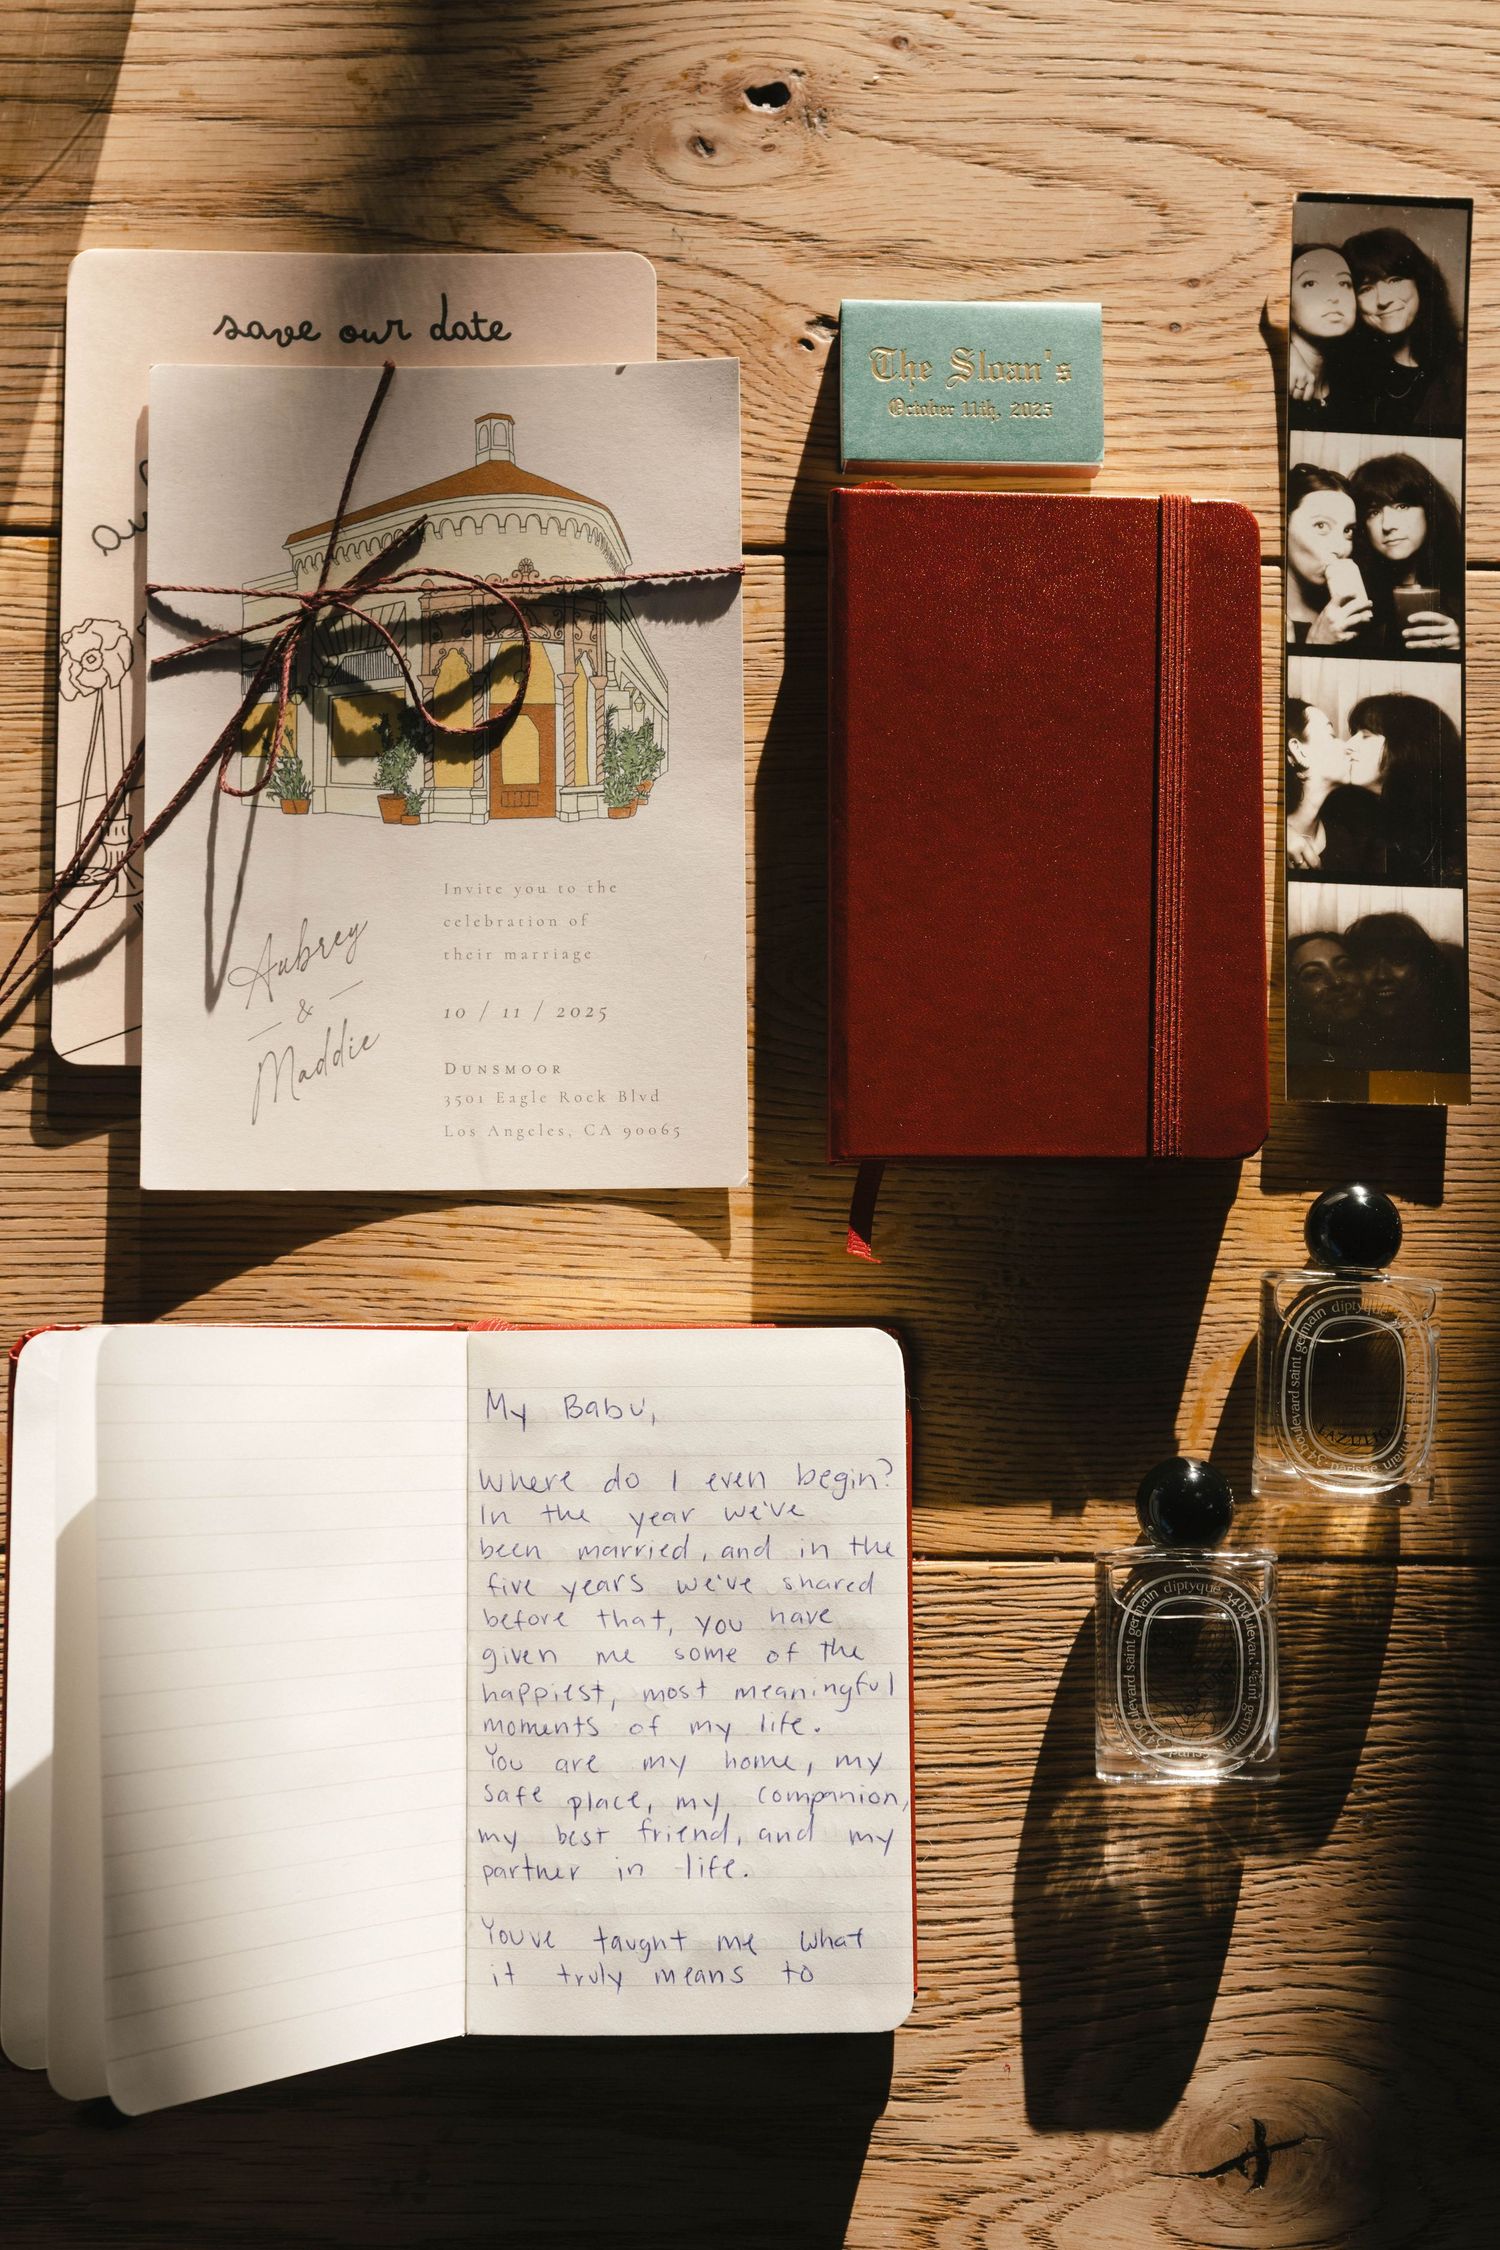 save our date
Aubrey
&
Maddie
Invite you to the
celebration of
their marriage
10 / 11 / 2025
DUNSMOOR
3501 Eagle Rock Blvd
Los Angeles, CA 90065
The Sloan's
October 11th, 2025
My Babu,
Where do I even begin?
In the year we've
been married, and in the
five years we've shared
before that, you have
given me some of the
happiest, most meaningful
moments of my life.
You are my home, my
safe place, my companion,
my best friend, and my
partner in life.
You've taught me what
it truly means to
diptyque 34 boulevard saint germain
34 boulevard saint germain diptyque 34 boulevard saint germain